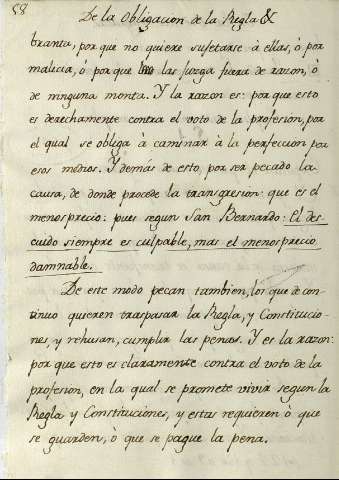 58
De la Obligacion de la Regla &
branta, por que no quiere sujetarse à ellas, ò por
malicia, ò por que las juzga fuera de razon, ò
de ninguna monta. Y la razon es: por que esto
es derechamente contra el voto de la profesion, por
el qual se obliga à caminar à la perfeccion por
esos medios. Y demàs de esto, por ser pecado la
causa, de donde procede la transgresion: que es el
menosprecio: pues segun San Bernardo: El des-
cuido siempre es culpable, mas el menosprecio
damnable.
De este modo pecan tambien, los que de con-
tinuo quieren traspasar la Regla, y Constitucio-
nes, y rehusan, cumplir las penas. Y es la razon:
por que esto es claramente contra el voto de la
profesion, en la qual se promete vivir segun la
Regla y Constituciones, y estas requieren ò que
se guarden, ò que se pague la pena.